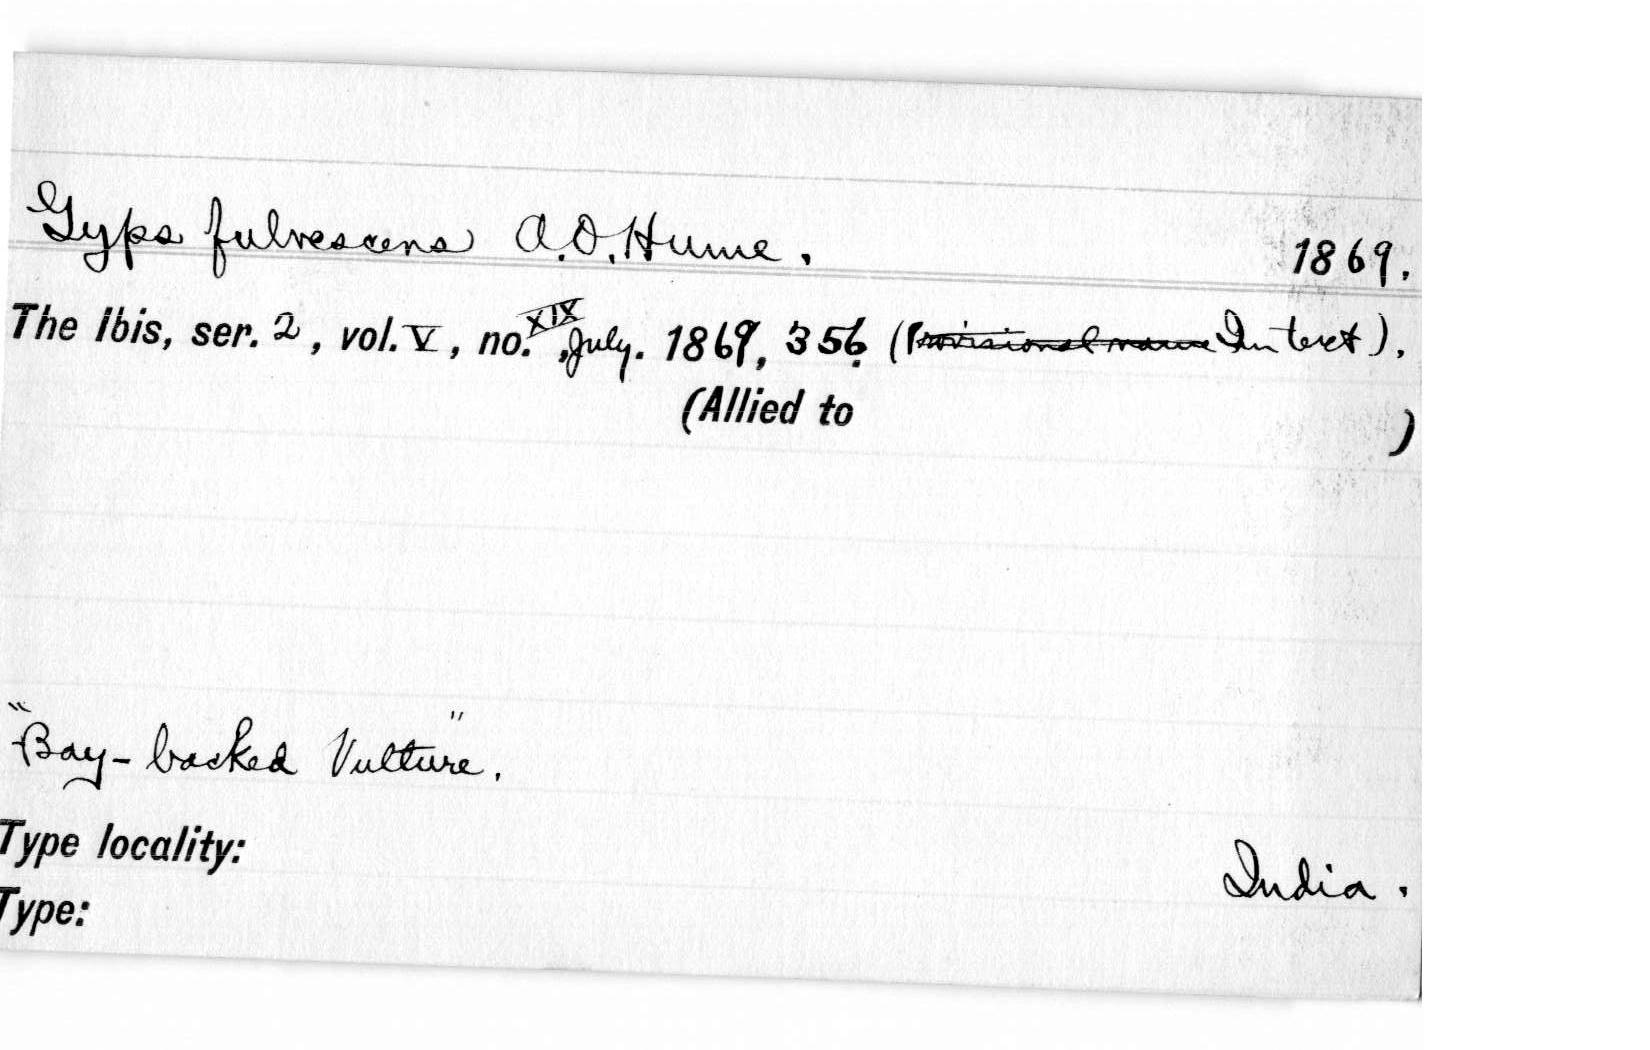 Gyps fulvescens A.O. Hume. 1869.
The Ibis, ser. 2, vol. V, no. XIX, July. 1869, 356. (Provisional name In text).
(Allied to )
"Bay-backed Vulture".
Type locality: India.
Type: